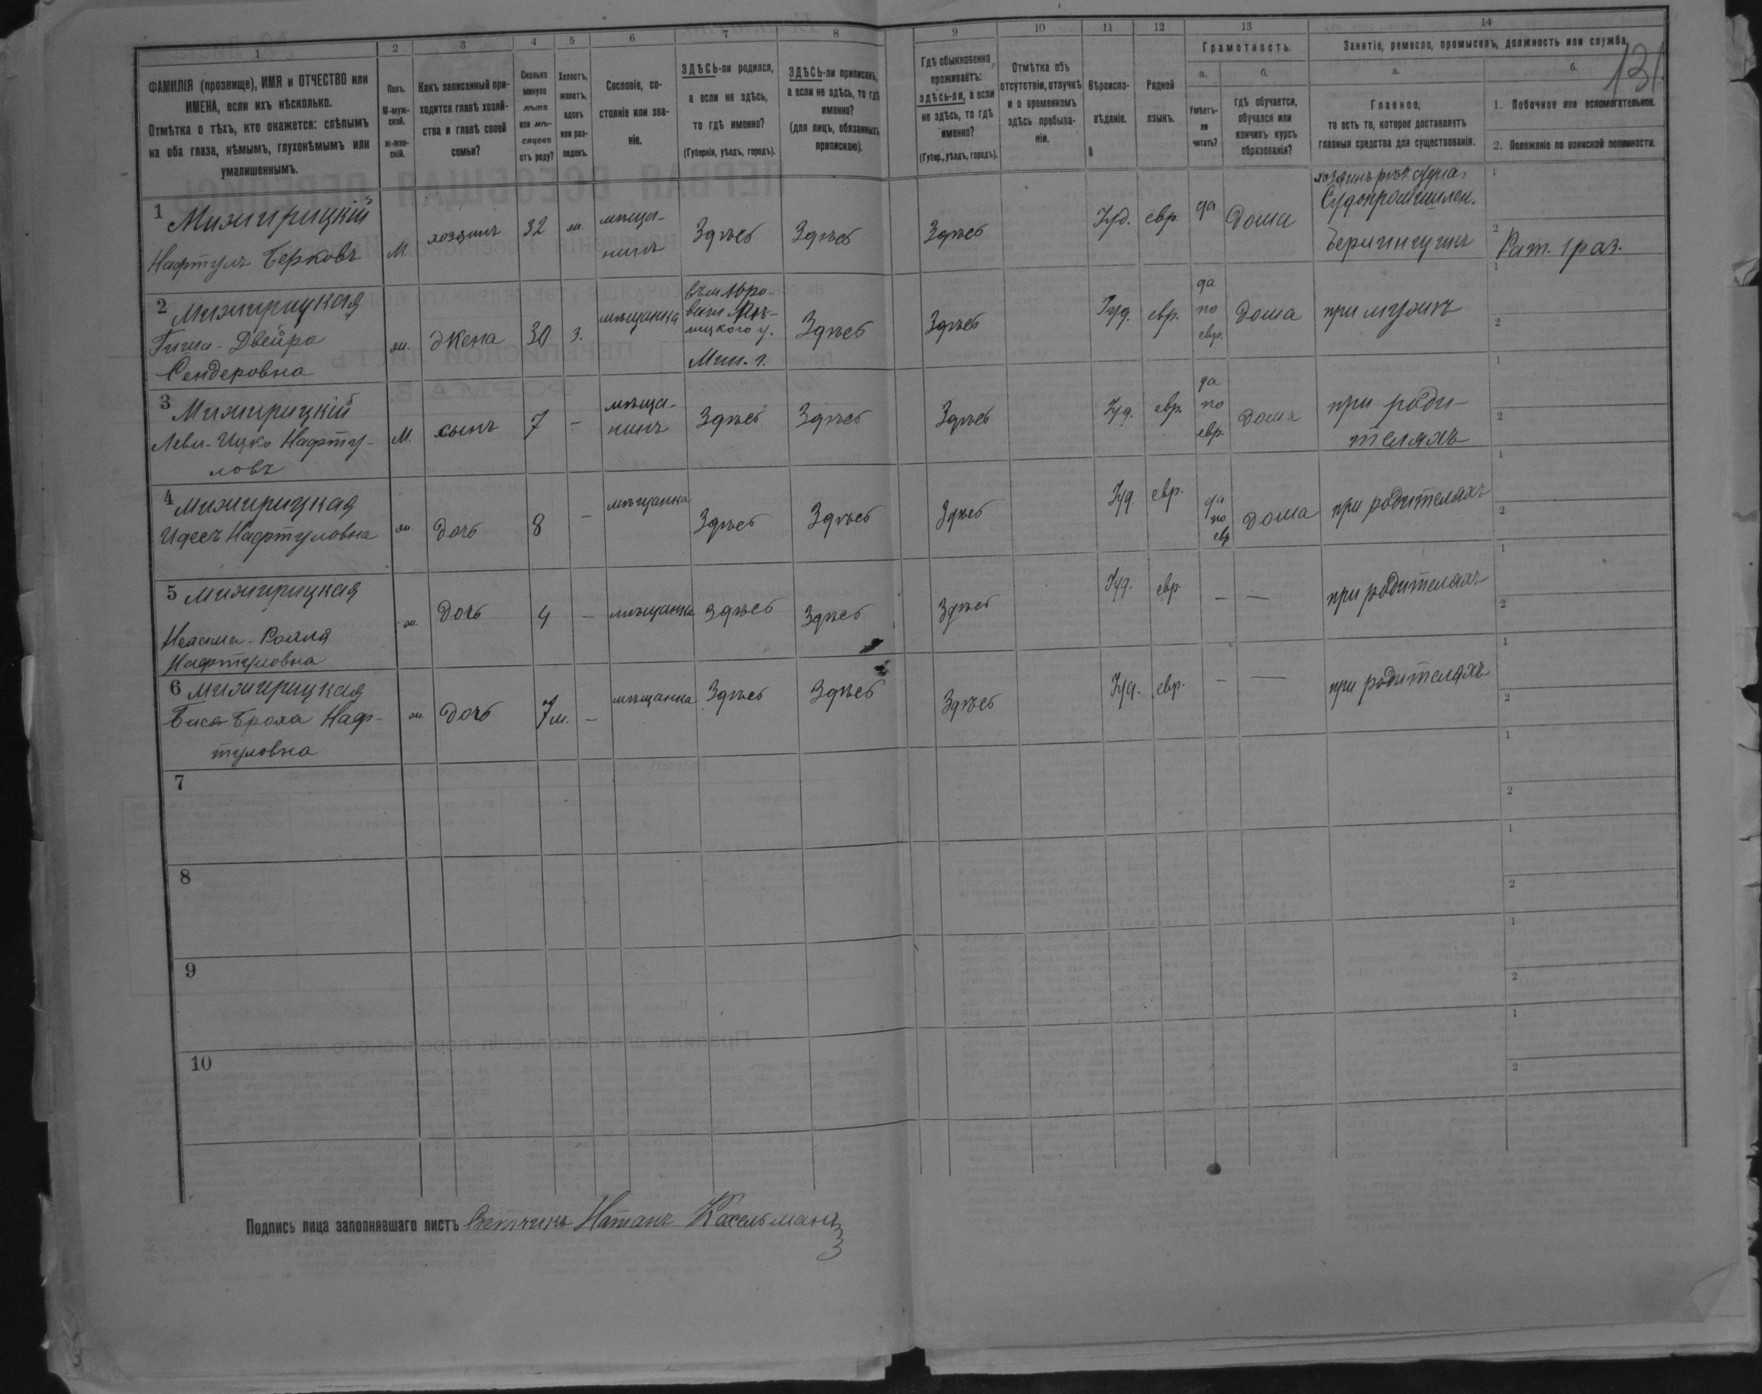 131
1 2 3 4 5 6 7 8 9 10 11 12 13 14
ФАМИЛІЯ (прозвище), ИМЯ и ОТЧЕСТВО или
ИМЕНА, если ихъ нѣсколько.
Отмѣтка о тѣхъ, кто окажется: слѣпымъ
на оба глаза, нѣмымъ, глухонѣмымъ или
умалишеннымъ.
Полъ.
М-муж-
ской.
ж-жен-
скій.
Какъ записанный при-
ходится главѣ хозяй-
ства и главѣ своей
семьи?
Сколько
минуло
лѣтъ
или мѣ-
сяцевъ
отъ роду?
Холостъ,
женатъ,
вдовъ
или раз-
веденъ.
Сословіе, со-
стояніе или зва-
ніе.
ЗДѢСЬ-ли родился,
а если не здѣсь,
то гдѣ именно?
(Губернія, уѣздъ, городъ).
ЗДѢСЬ-ли приписанъ,
а если не здѣсь, то гдѣ
именно?
(для лицъ, обязанныхъ
припискою).
Гдѣ обыкновенно
проживаетъ:
здѣсь-ли, а если
не здѣсь, то гдѣ
именно?
(Губер., уѣздъ, городъ).
Отмѣтка объ
отсутствіи, отлучкѣ
и о временномъ
здѣсь пребыва-
ніи.
Вѣроиспо-
вѣданіе.
Родной
языкъ.
Грамотность.
а.
Умѣетъ-
ли
читать?
б.
гдѣ обучается,
обучался или
кончилъ курсъ
образованія?
Занятіе, ремесло, промыселъ, должность или служба.
а.
Главное,
то есть то, которое доставляетъ
главныя средства для существованія.
б.
1. Побочное или вспомогательное.
2. Положеніе по воинской повинности.
1 Мижирицкій
Нафтулъ Берковъ
М хозяинъ 32 ж. мѣща-
нинъ
Здѣсь Здѣсь Здѣсь Іуд. евр. да Дома
Судопромышлен.
Рат. 1 раз.
2 Мижирицкая
Двейра
Сендеровна
ж. Жена 30 з. мѣщанка
Мин. г.
Здѣсь Здѣсь Іуд. евр.
да
по
евр.
Дома при мужѣ
3 Мижирицкій
Леви-Ицко Нафту-
ловъ
М. сынъ 7 - мѣща-
нинъ
Здѣсь Здѣсь Здѣсь Іуд. евр.
да
по
евр.
Дома при роди-
теляхъ
4 Мижирицкая
Идесъ Нафтуловна
ж. Дочь 8 - мѣщанка Здѣсь Здѣсь Здѣсь Іуд. евр.
да
по
евр
Дома при родителяхъ
5 Мижирицкая
Нафтуловна
ж. Дочь 4 - мѣщанка Здѣсь Здѣсь Здѣсь Іуд. евр. - - при родителяхъ
6 Мижирицкая
Бася Броха Наф-
туловна
ж. Дочь 7 м. - мѣщанка Здѣсь Здѣсь Здѣсь Іуд. евр. - - при родителяхъ
7
8
9
10
Подпись лица заполнявшаго листъ Счетчикъ Натанъ